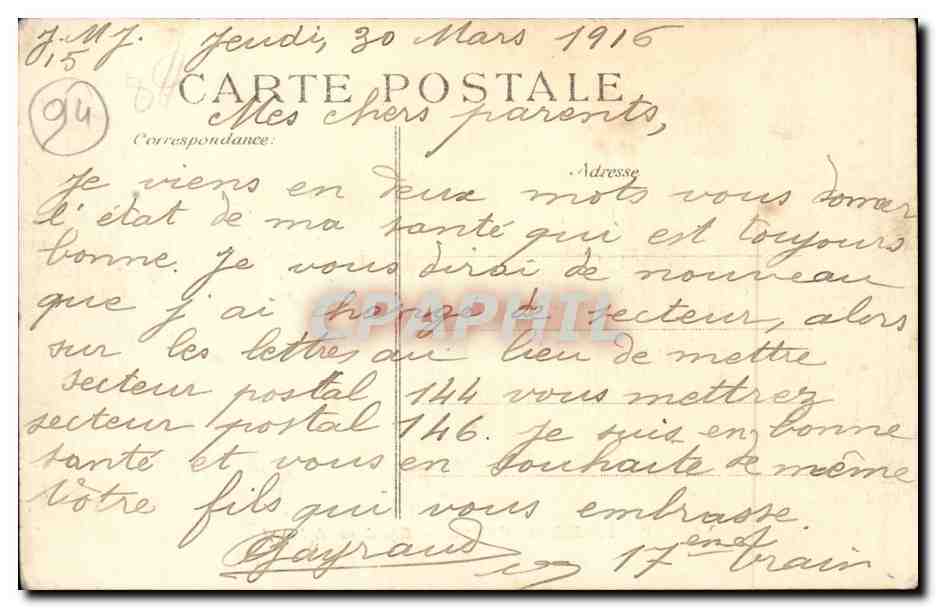 J.M.J. Jeudi, 30 Mars 1916
15
94
CARTE POSTALE
Mes chers parents,
Correspondance:
Adresse
Je viens en deux mots vous donner
l'état de ma santé qui est toujours
bonne. Je vous dirai de nouveau
que j'ai changé de secteur, alors
sur les lettres au lieu de mettre
secteur postal 144 vous mettrez
secteur postal 146. Je suis en bonne
santé et vous en souhaite de même
Votre fils qui vous embrasse.
Gayraud
17ème train
CPAPHIL